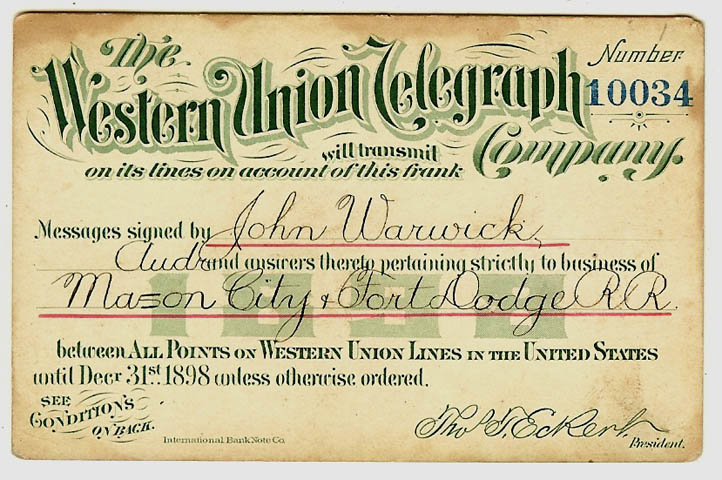 The
Western Union Telegraph
Company.
Number
10034
will transmit
on its lines on account of this frank
Messages signed by John Warwick,
Audr and answers thereto pertaining strictly to business of
Mason City & Fort Dodge R.R.
1898
between ALL POINTS ON WESTERN UNION LINES IN THE UNITED STATES
until Decr 31st. 1898 unless otherwise ordered.
SEE
CONDITIONS
ON BACK.
International Bank Note Co.
Tho. T. Eckert
President.